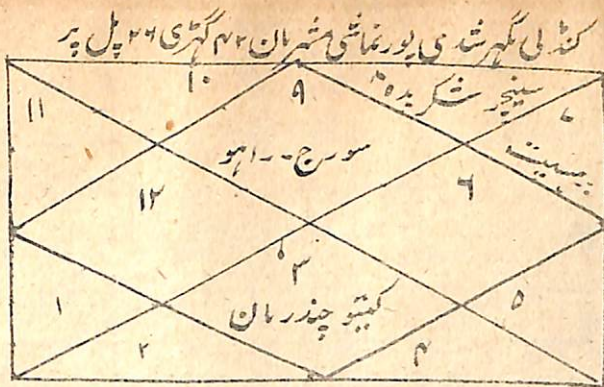 کنڈلی گہر شدی پورنماشی مشہ بان ۴۲ گہڑی ۲۶ پل پر
۱۰
۹
سنیچر شکر بدہ ۸
۷
۱۱
برہسپت
سورج - راہو
۱۲
۶
۳
کیتو چندرمان
۱
۲
۴
۵